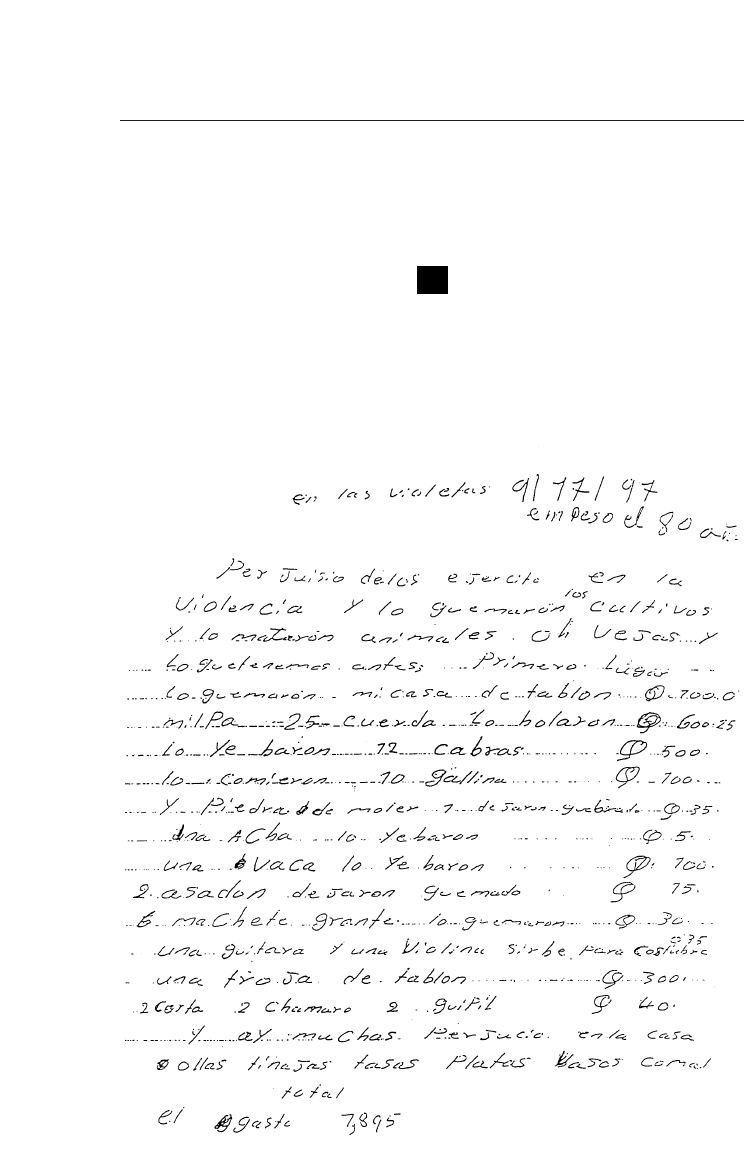 en las violetas 9/17/97
empeso el 80 añ
Per Juisio delos ejercito en la
Violencia Y lo quemarón los Cultivos
Y lo matarón animales. oh VeJas Y
Lo quetenemos antess Primero. Lugar
Lo quemarón. mi casa de tablon Q. 700.0
milPa 25 cuerda Lo bolaron Q 600.25
Lo Ye baron 12 cabras Q 500.
lo comieron 10 gallina Q. 100.
Y Piedra de moler 1 deJaron quebrado Q. 35.
una ACha lo Yebaron Q 5.
una VaCa lo Ye baron Q. 100.
2 asadon deJaron quemado Q 15.
6 maChete grante lo quemaron Q 30.
una guitara Y una Violina sirbe para Costubre Q 35
una troJa de tablon Q 300.
2 Corta 2 Chamaro 2 guiPil Q 40.
Y aY muChas PerJucio en la casa
ollas tinaJas tasas Platas Vasos Comal
total
el gasto 7,895